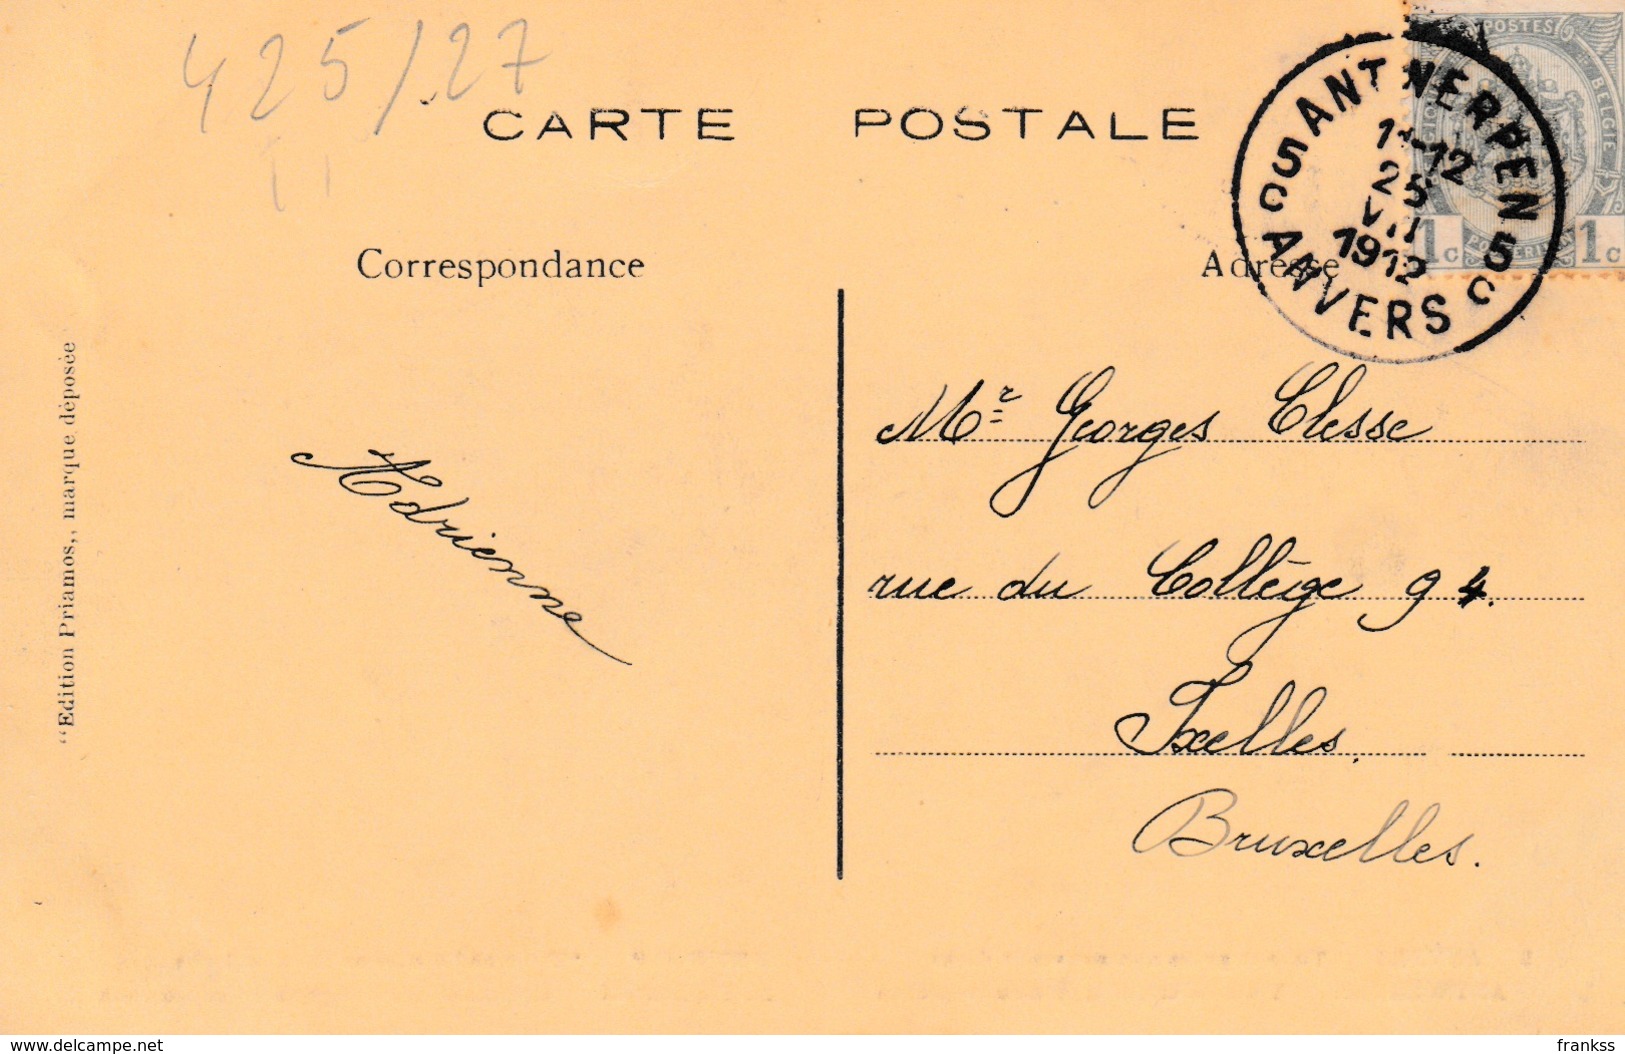 425/27
CARTE POSTALE
POSTES
BELGIE
1c 1c
ANTWERPEN
5 5
11-12
25
VII
1912
C C
ANVERS
Correspondance
Adresse
"Edition Priamos,, marque déposée
Adrienne
Mr Georges Clesse
rue du Collège 94.
Ixelles.
Bruxelles.
www.delcampe.net
frankss